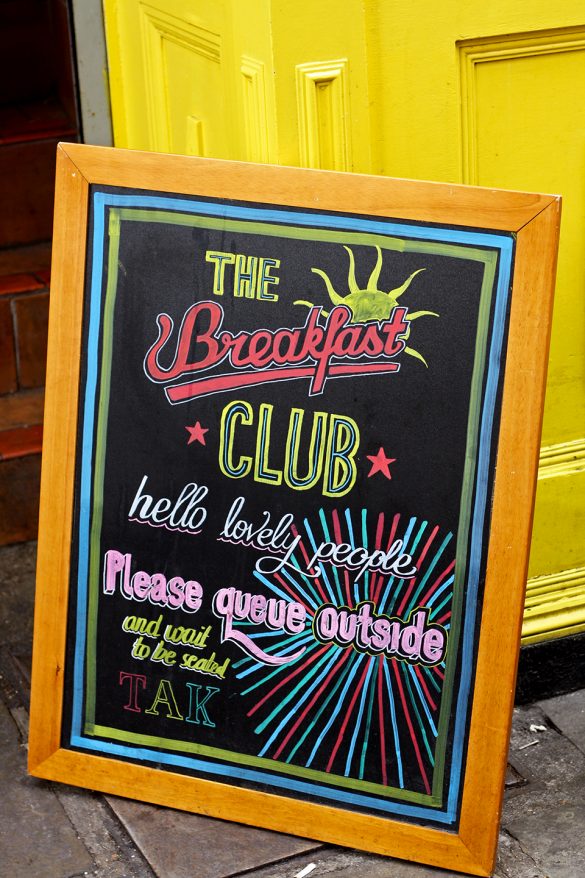 THE
Breakfast
CLUB
hello lovely people
Please queue outside
and wait
to be seated
TAK